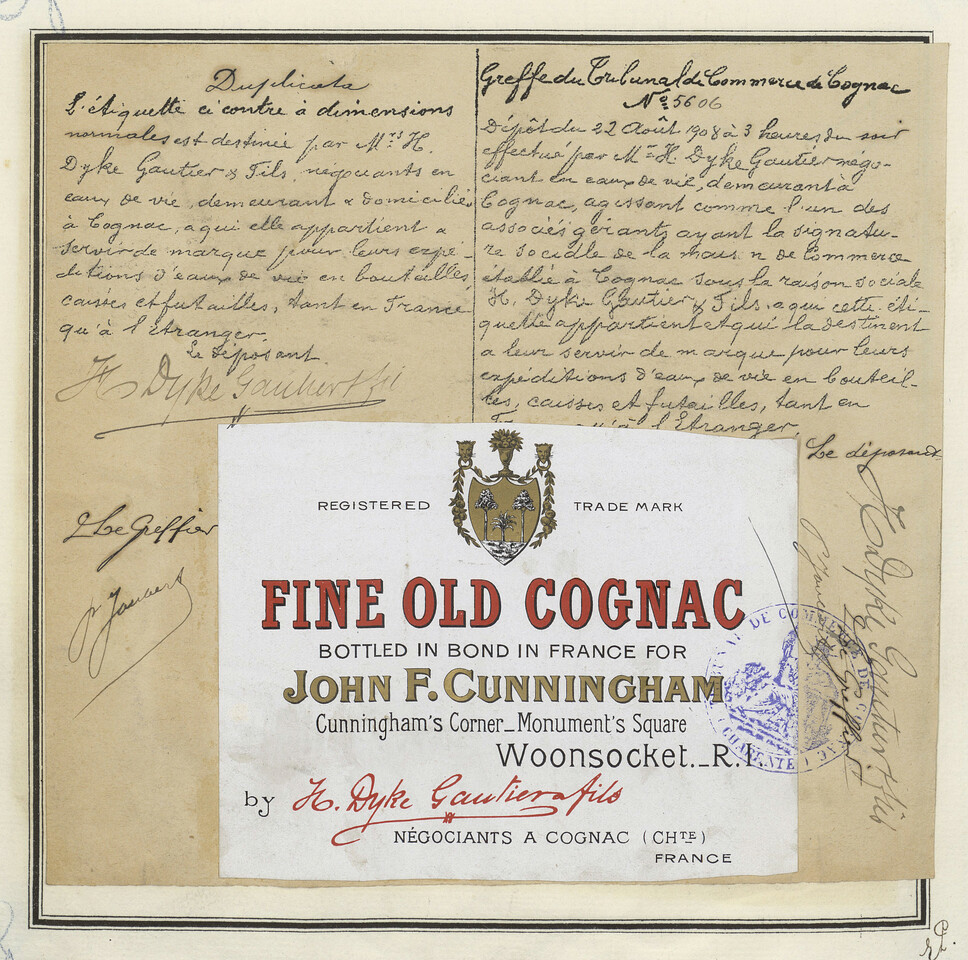 Duplicata
L'étiquette ci contre à dimensions
normales est destinée par Mrs H.
Dyke Gautier & Fils, négociants en
eaux de vie, demeurant & domiciliés
à Cognac, a qui elle appartient a
servir de marque pour leurs expé-
ditions d'eaux de vie en bouteilles
caisses et futailles, tant en France
qu'à l'Etranger.
Le déposant
H Dyke Gautier & fils
Le Greffier
Greffe du Tribunal de Commerce de Cognac
No 5606
Dépôt du 22 Août 1908 à 3 heures du soir
effectué par Mr H. Dyke Gautier négo-
ciant en eaux de vie, demeurant à
Cognac, agissant comme l'un des
associés gérants ayant la signatu-
re sociale de la maison de Commerce
établie à Cognac sous la raison sociale
H. Dyke Gautier & Fils, a qui cette éti-
quette appartient et qui la destinent
a leur servir de marque pour leurs
expéditions d'eaux de vie en bouteil-
les, caisses et futailles, tant en
qu'à l'Etranger.
Le déposant
H Dyke Gautier & fils
Le Greffier
REGISTERED TRADE MARK
FINE OLD COGNAC
BOTTLED IN BOND IN FRANCE FOR
JOHN F. CUNNINGHAM
Cunningham's Corner_Monument's Square
Woonsocket._R.I.
by H. Dyke Gautier & fils
NÉGOCIANTS A COGNAC (CHTE)
FRANCE
TRIBUNAL DE COMMERCE DE COGNAC
(CHARENTE)